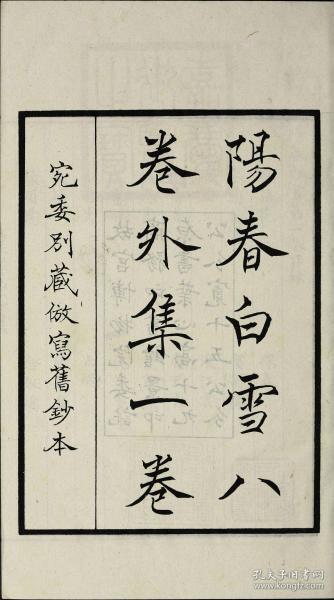 陽春白雪八
卷外集一卷
宛委別藏倣寫舊鈔本
孔夫子旧书网
kongfz.com